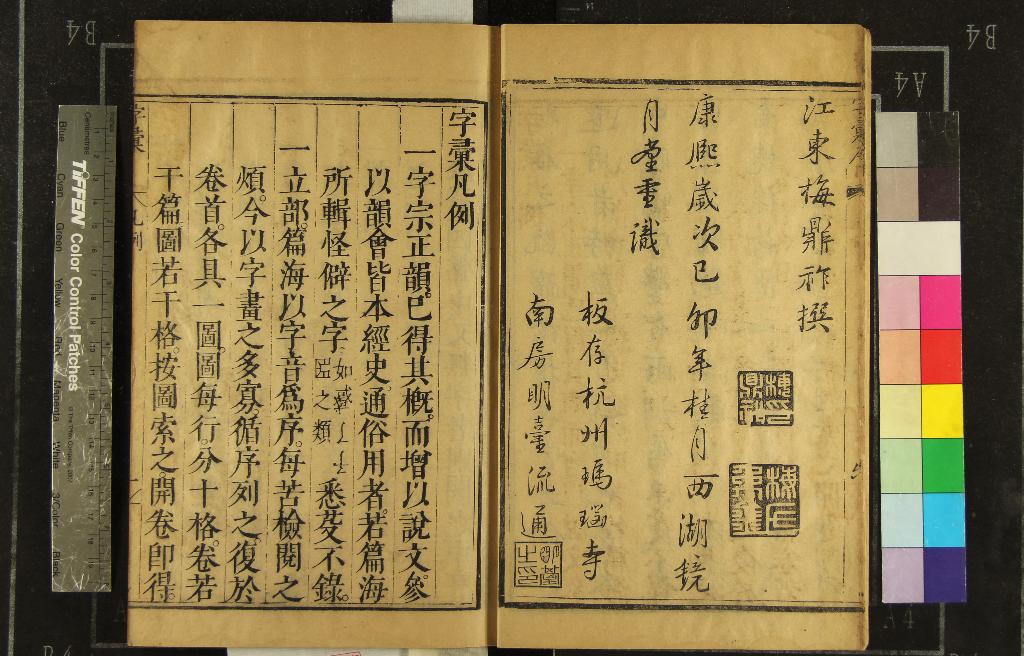 江東梅鼎祚撰
康熙歲次己卯年桂月西湖鏡
月堂重識
板存杭州瑪瑙寺
南房明臺流通
字彙凡例
一字宗正韻。已得其概。而增以說文。參
以韻會皆本經史通俗用者。若篇海
所輯怪僻之字
之類
悉芟不錄。
一立部。篇海以字音爲序。每苦檢閱之
煩。今以字畫之多寡循序列之。復於
卷首。各具一圖。圖每行。分十格。卷若
干篇圖若干格。按圖索之開卷卽得。
字彙
凡例
TIFFEN Color Control Patches
Blue
Cyan
Green
Yellow
Red
Magenta
White
3/Color
Black
Centimetres
B4
A4
B4
A4